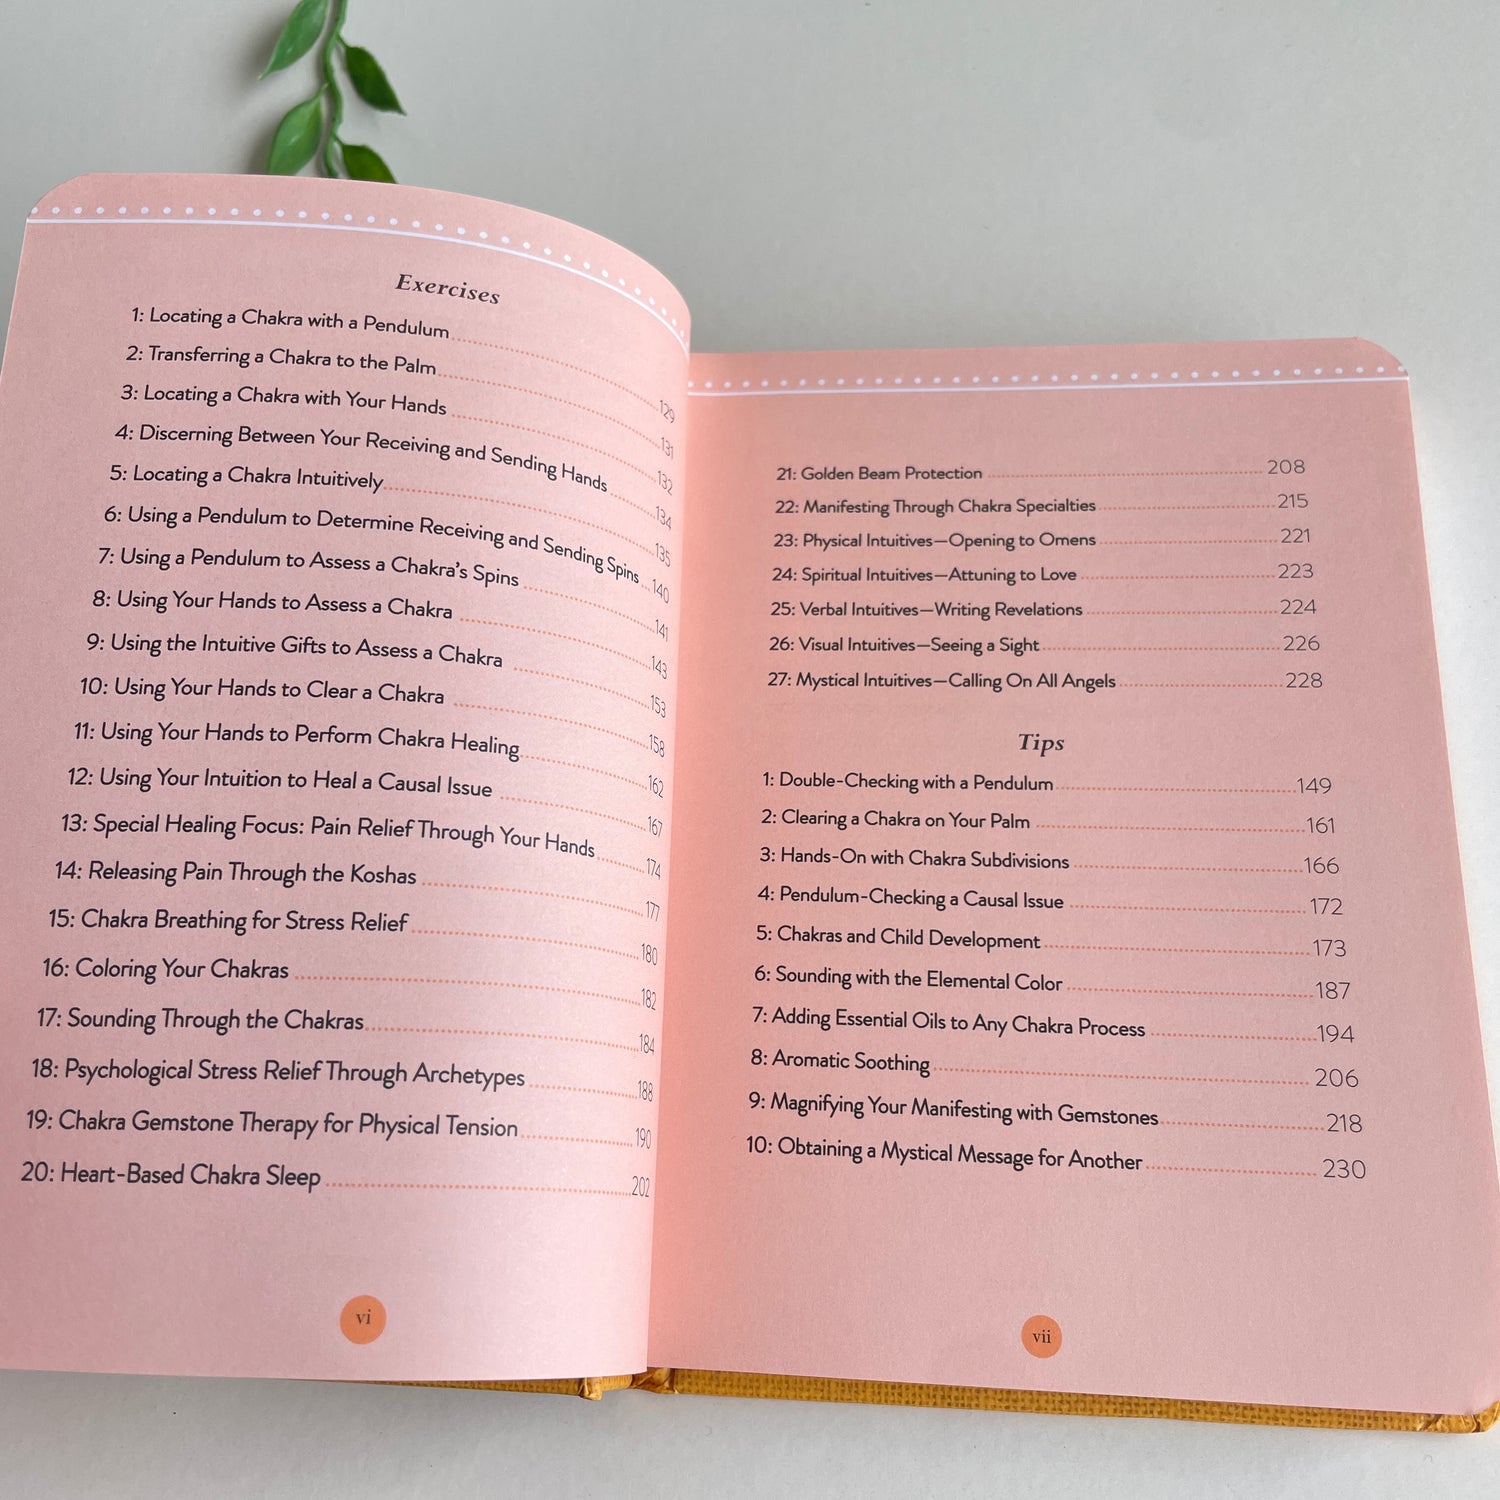 Exercises
1: Locating a Chakra with a Pendulum 129
2: Transferring a Chakra to the Palm 131
3: Locating a Chakra with Your Hands 132
4: Discerning Between Your Receiving and Sending Hands 134
5: Locating a Chakra Intuitively 135
6: Using a Pendulum to Determine Receiving and Sending Spins 140
7: Using a Pendulum to Assess a Chakra's Spins 141
8: Using Your Hands to Assess a Chakra 143
9: Using the Intuitive Gifts to Assess a Chakra 153
10: Using Your Hands to Clear a Chakra 158
11: Using Your Hands to Perform Chakra Healing 162
12: Using Your Intuition to Heal a Causal Issue 167
13: Special Healing Focus: Pain Relief Through Your Hands 174
14: Releasing Pain Through the Koshas 177
15: Chakra Breathing for Stress Relief 180
16: Coloring Your Chakras 182
17: Sounding Through the Chakras 184
18: Psychological Stress Relief Through Archetypes 188
19: Chakra Gemstone Therapy for Physical Tension 190
20: Heart-Based Chakra Sleep 202
vi
21: Golden Beam Protection 208
22: Manifesting Through Chakra Specialties 215
23: Physical Intuitives—Opening to Omens 221
24: Spiritual Intuitives—Attuning to Love 223
25: Verbal Intuitives—Writing Revelations 224
26: Visual Intuitives—Seeing a Sight 226
27: Mystical Intuitives—Calling On All Angels 228
Tips
1: Double-Checking with a Pendulum 149
2: Clearing a Chakra on Your Palm 161
3: Hands-On with Chakra Subdivisions 166
4: Pendulum-Checking a Causal Issue 172
5: Chakras and Child Development 173
6: Sounding with the Elemental Color 187
7: Adding Essential Oils to Any Chakra Process 194
8: Aromatic Soothing 206
9: Magnifying Your Manifesting with Gemstones 218
10: Obtaining a Mystical Message for Another 230
vii